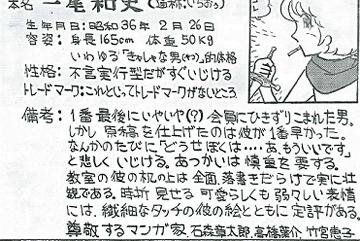 本名 一尾和史(通称・いちおう)
生年月日:昭和36年2月26日
容姿:身長165cm 体重50kg
いわゆる「きゃしゃな男(や)」的体格
性格:不言実行型だがすぐいじける
トレードマーク:これといってトレードマークがないところ
備考:1番最後にいやいや(?)会員にひきずりこまれた男。
しかし原稿を仕上げたのは彼が1番早かった。
なんかのたびに「どうせぼくは‥‥あ、もういいです」
と悲しくいじける。あつかいは慎重を要する。
教室の彼の机の上は全面、落書きだらけで実に壮
観である。時折見せる可愛らしくも弱々しい表情
には、繊細なタッチの彼の絵とともに定評がある。
尊敬するマンガ家、石森章太郎、高橋葉介、竹宮恵子